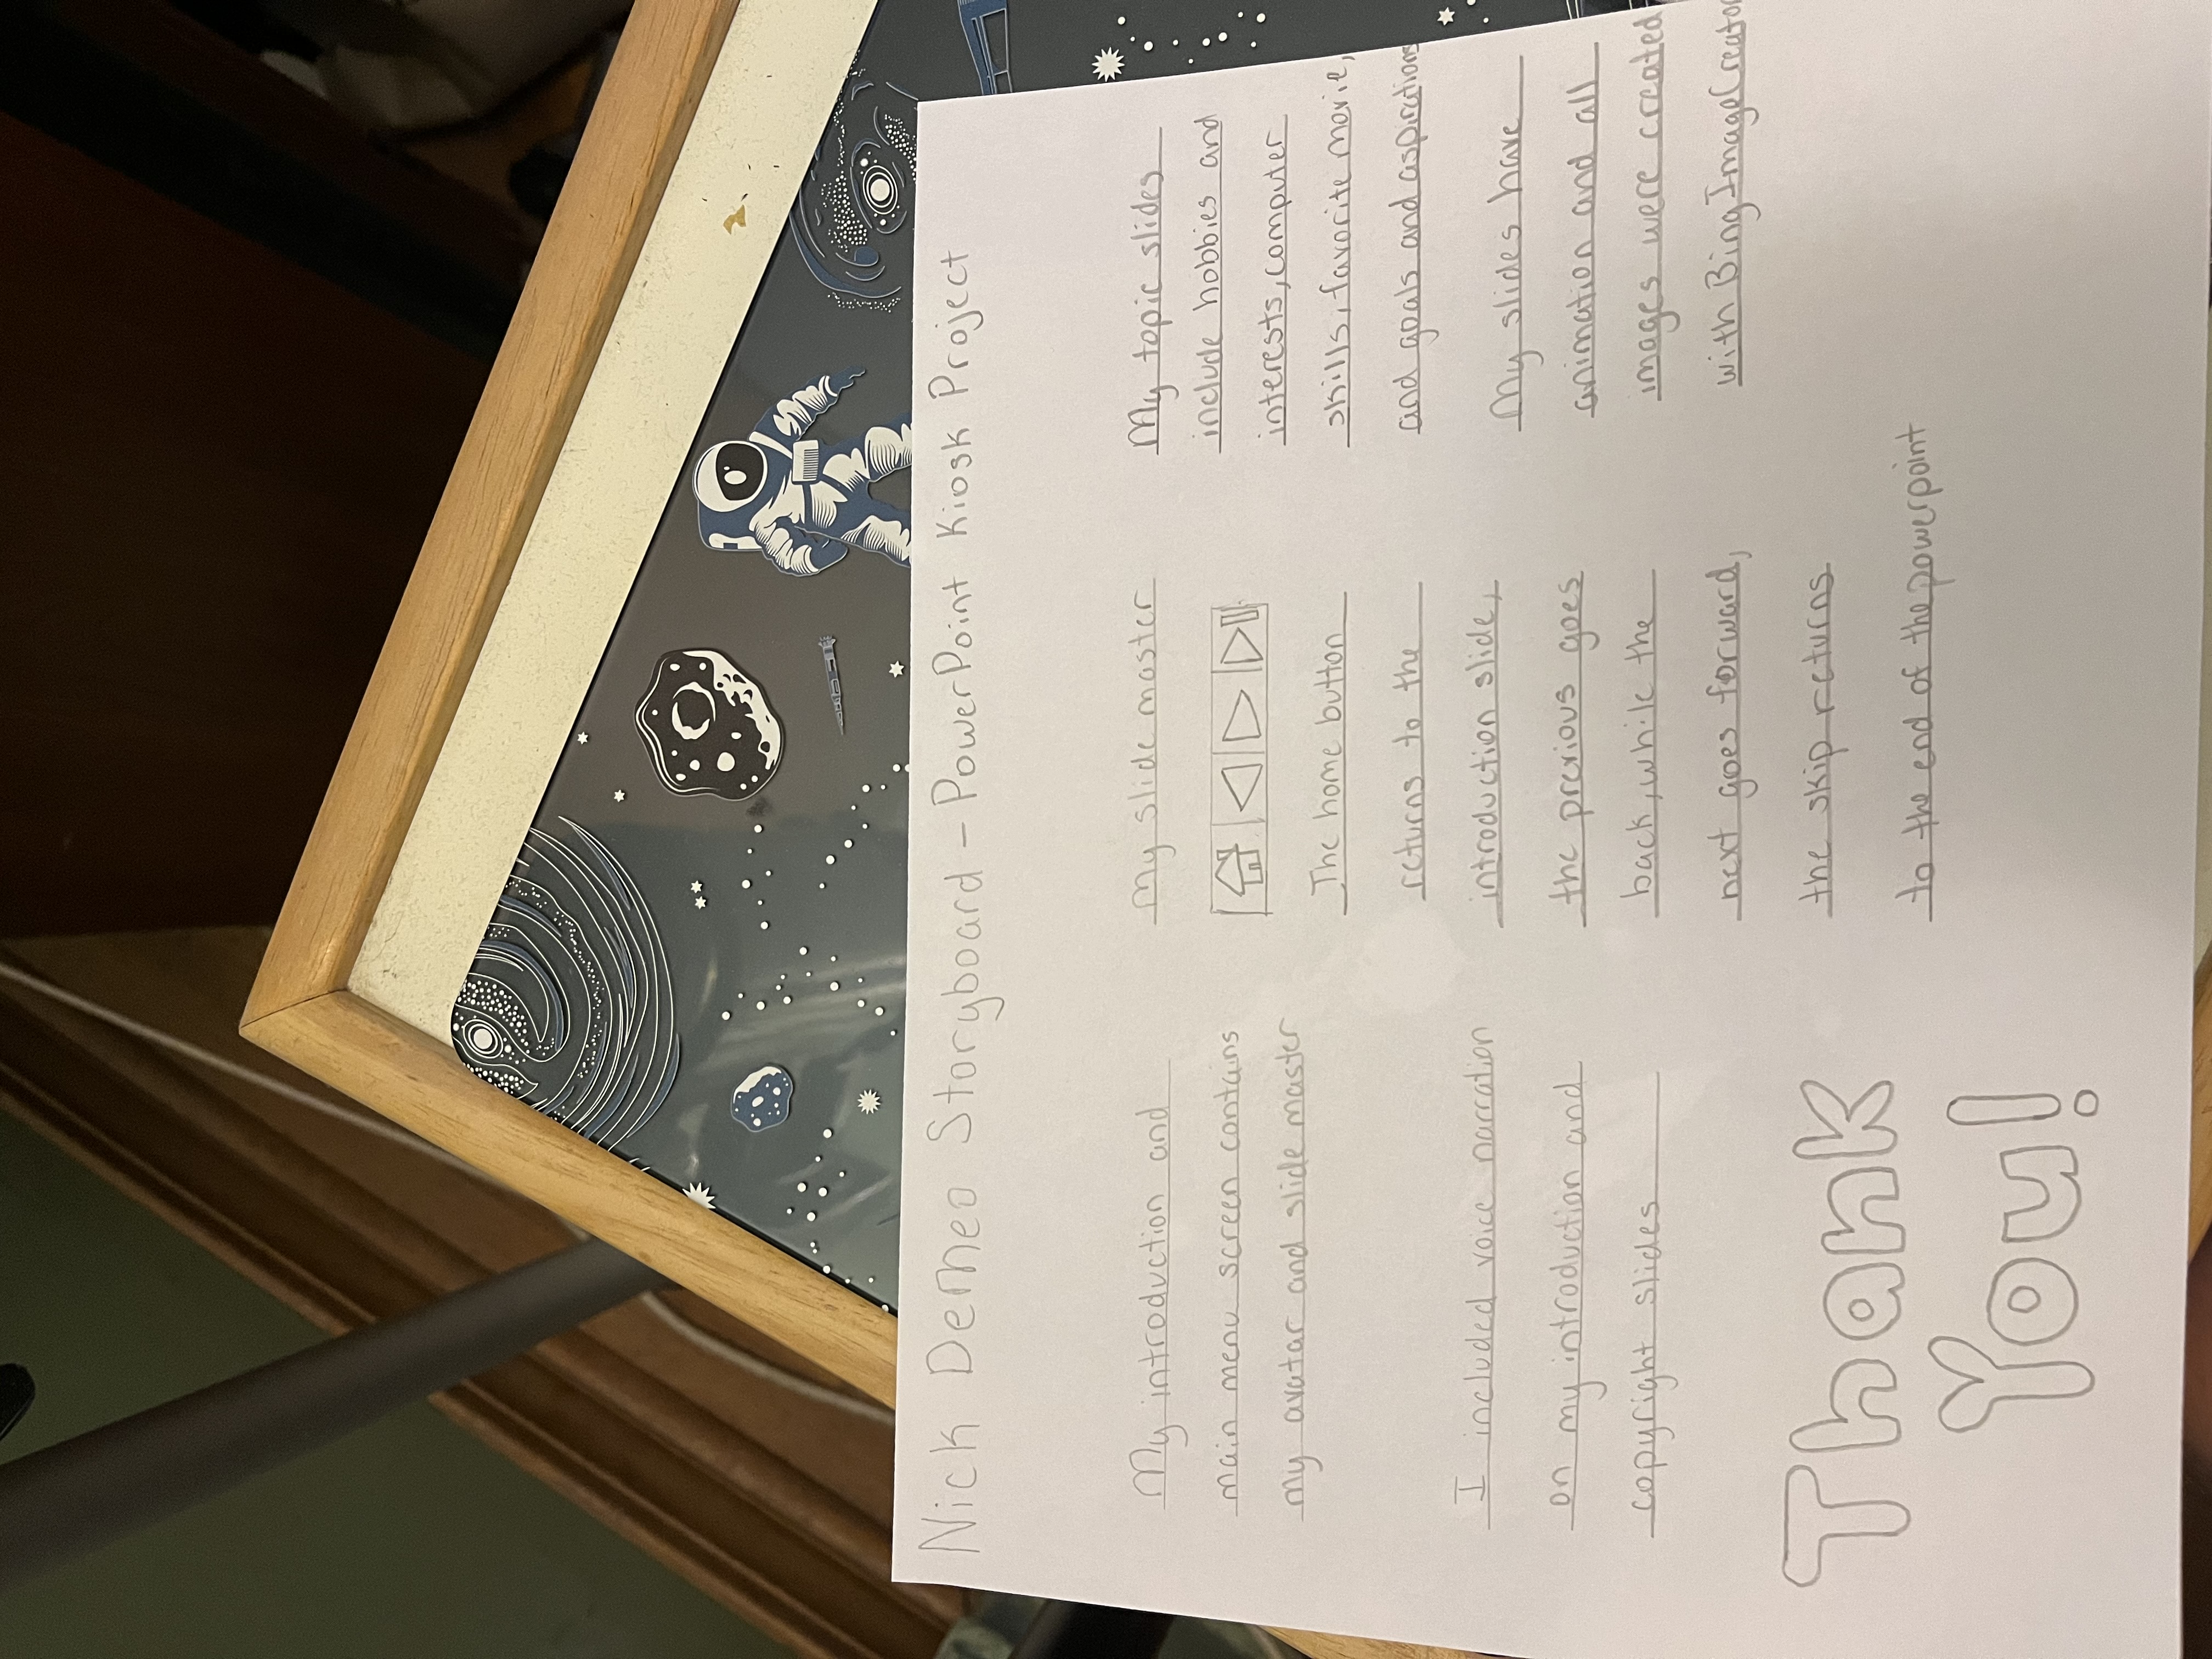 Nick Demeo Storyboard - PowerPoint Kiosk Project
My introduction and
main menu screen contains
my avatar and slide master
I included voice narration
on my introduction and
copyright slides
Thank
You!
My slide master
The home button
returns to the
introduction slide,
the previous goes
back, while the
next goes forward,
the skip returns
to the end of the powerpoint
My topic slides
include hobbies and
interests, computer
skills, favorite movie,
and goals and aspirations
My slides have
animation and all
images were created
with BingImageCreator